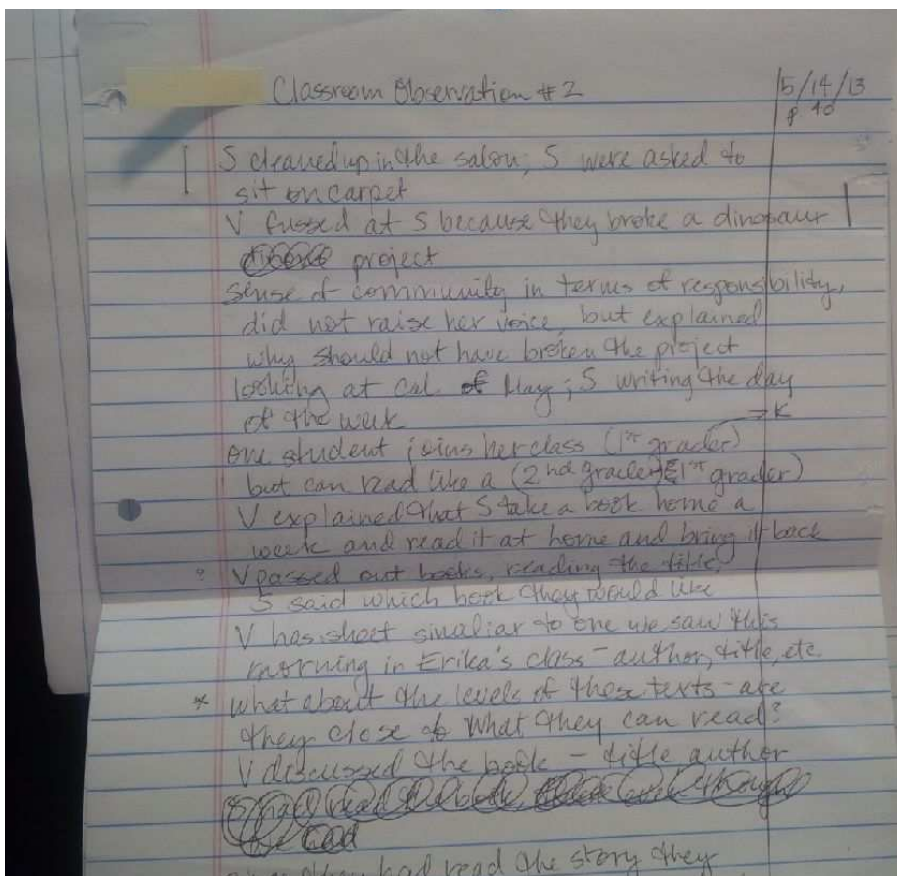 Classroom Observation #2
5/14/13
p. 10
S cleaned up in the salon; S were asked to
sit on carpet
V fussed at S because they broke a dinosaur
project
sense of community in terms of responsibility,
did not raise her voice, but explained
why should not have broken the project
looking at Cal. of May; S writing the day
of the week
→ K
one student joins her class (1st grader)
but can read like a (2nd grader 1st grader)
V explained that S take a book home a
week and read it at home and bring it back
? V passed out books, reading the title,
S said which book they would like
V has sheet similiar to one we saw this
morning in Erika's class - author, title, etc.
* what about the levels of these texts - are
they close to what they can read?
V discussed the book - title author
they had read the story they